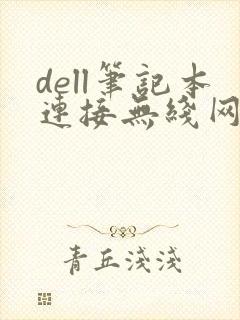 dell筆記本
連接無綫网
青丘淺淺